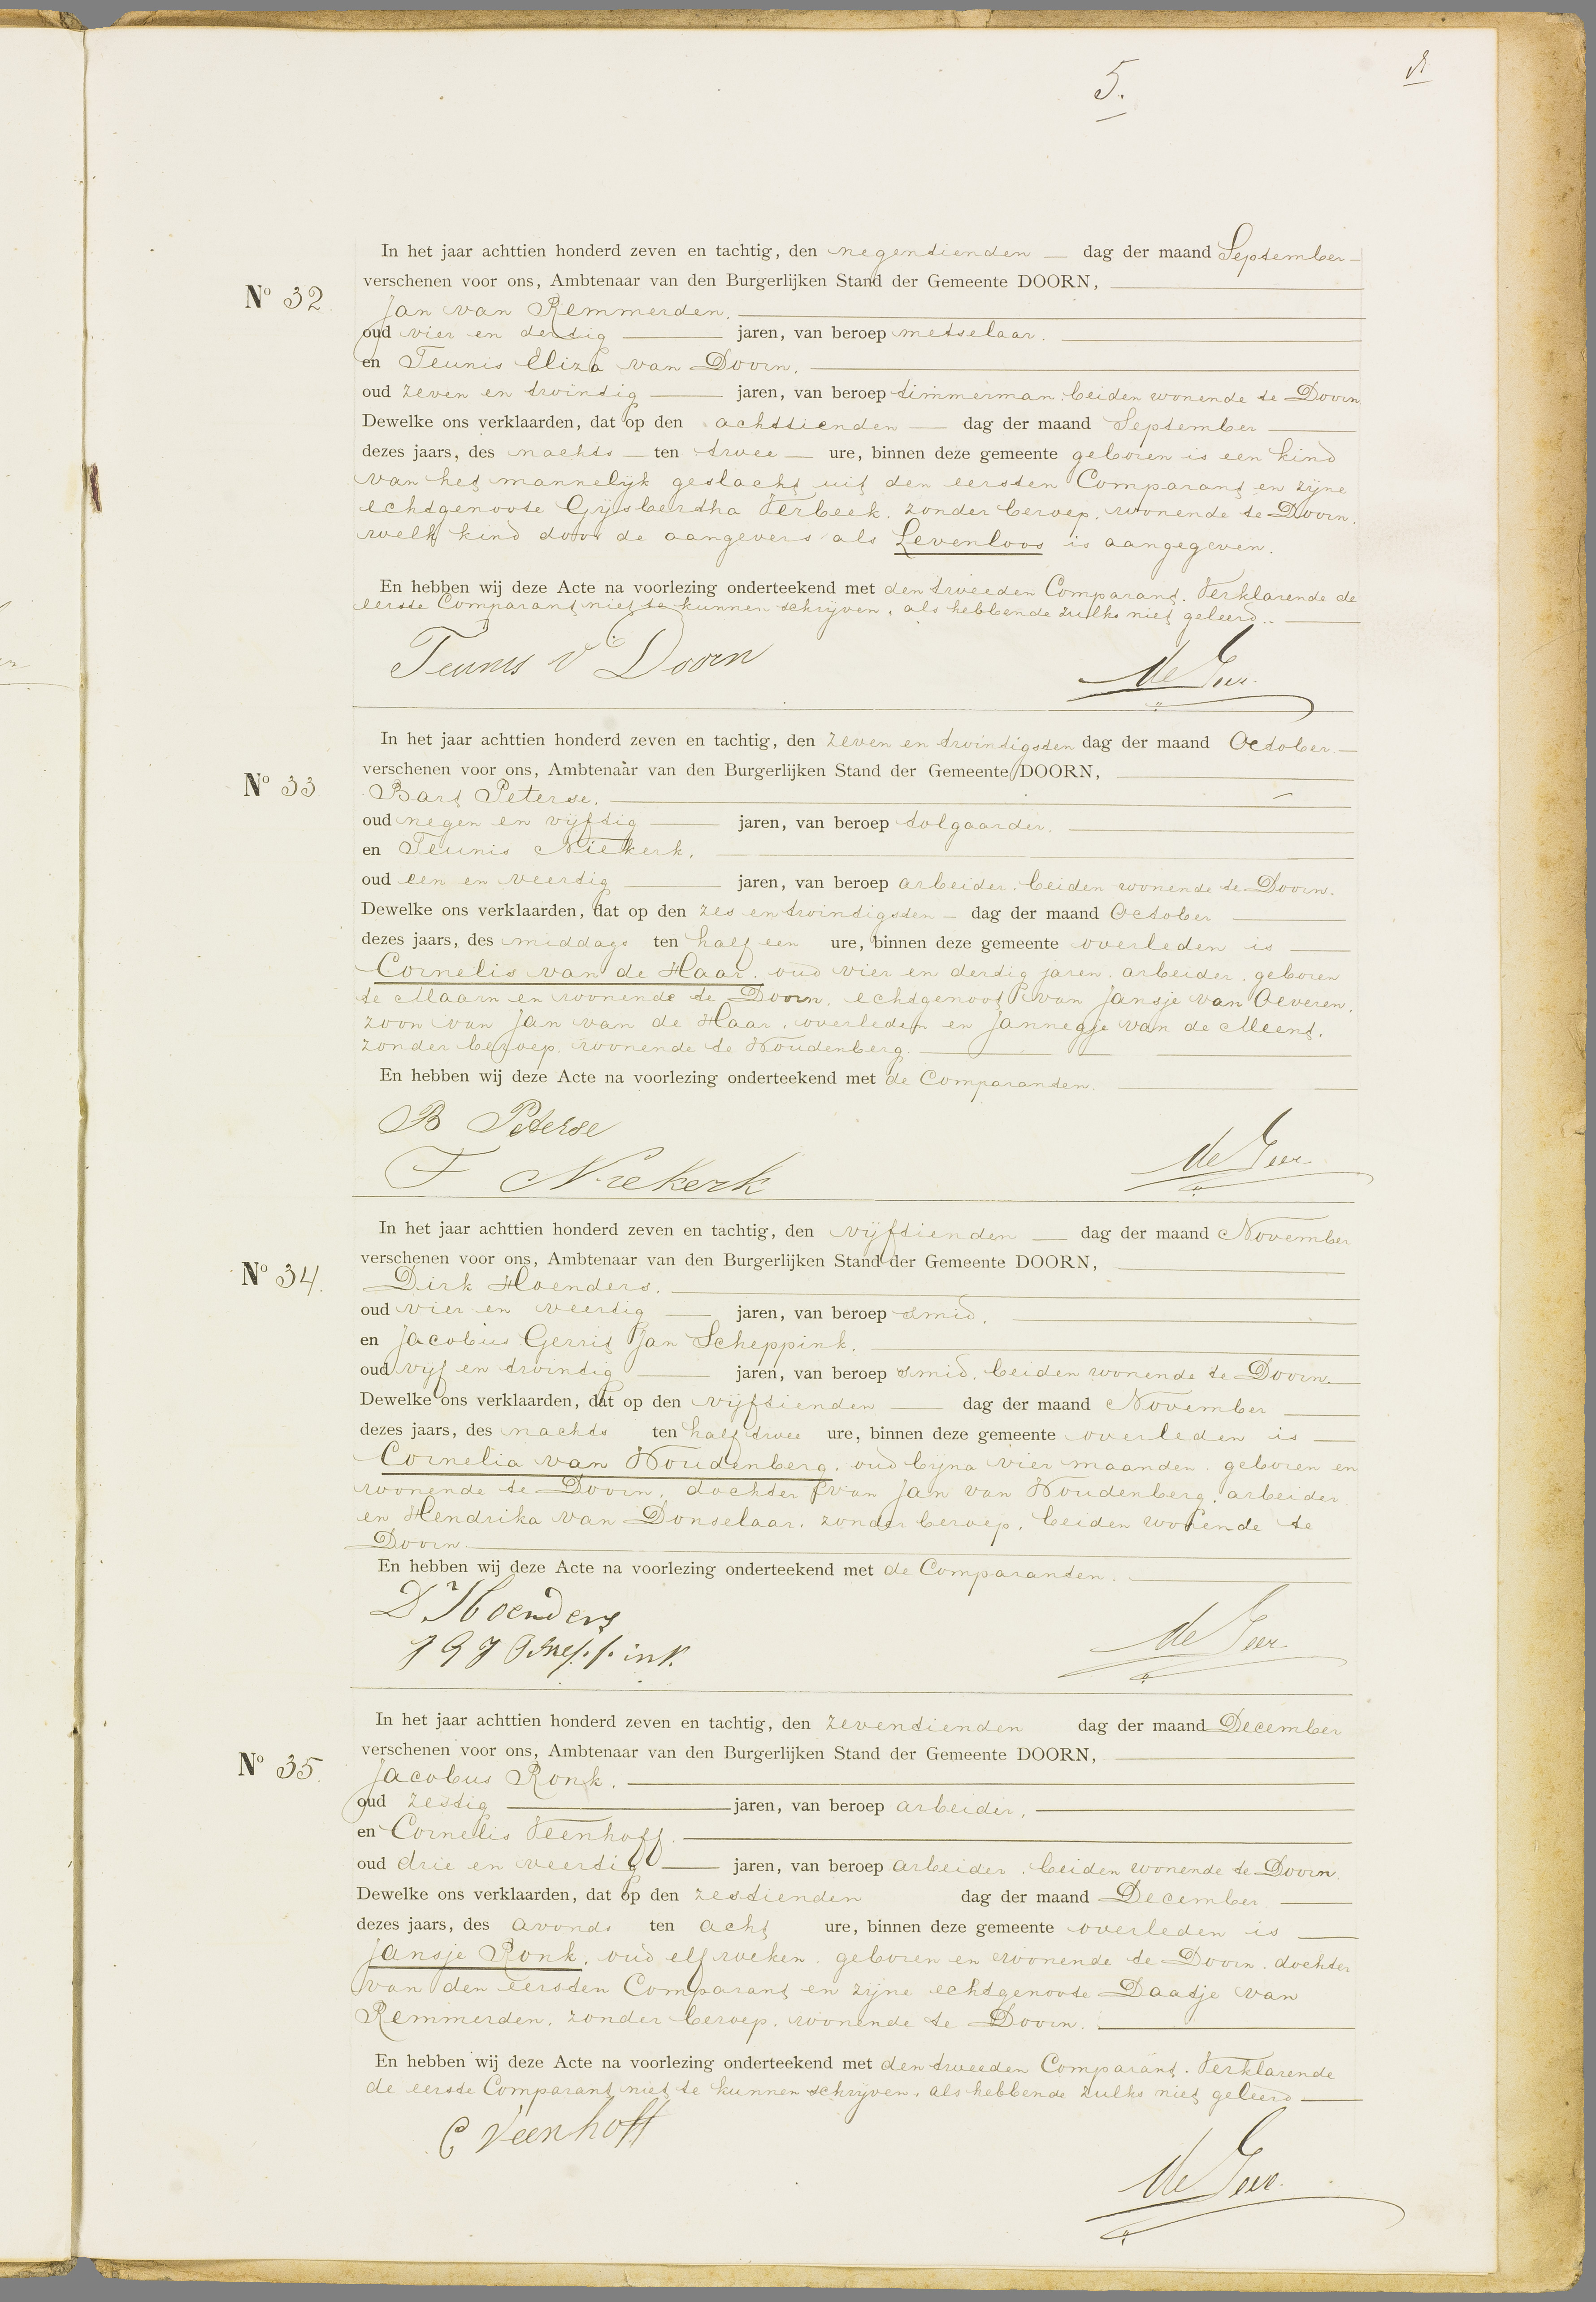 5.
In het jaar achttien honderd zeven en tachtig, den negentienden dag der maand September
verschenen voor ons, Ambtenaar van den Burgerlijken Stand der Gemeente DOORN,
No 32.
Jan van Remmerden,
oud vier en dertig jaren, van beroep metselaar.
en Teunis Eliza van Doorn,
oud zeven en twintig jaren, van beroep timmerman, beiden wonende te Doorn
Dewelke ons verklaarden, dat op den achttienden dag der maand September
dezes jaars, des nachts ten twee ure, binnen deze gemeente geboren is een kind
van het mannelijk geslacht uit den eersten Comparant en zijne
echtgenoote Gijsbertha Verbeek, zonder beroep, wonende te Doorn.
welk kind door de aangevers als Levenloos is aangegeven.
En hebben wij deze Acte na voorlezing onderteekend met den tweeden Comparant. Verklarende de
eerste Comparant niet te kunnen schrijven, als hebbende zulks niet geleerd.
Teunis v Doorn
de Geer
In het jaar achttien honderd zeven en tachtig, den zeven en twintigsten dag der maand October
verschenen voor ons, Ambtenaar van den Burgerlijken Stand der Gemeente DOORN,
No 33
Bart Peterse,
oud negen en vijftig jaren, van beroep tolgaarder,
en Teunis Niekerk,
oud een en veertig jaren, van beroep arbeider, beiden wonende te Doorn.
Dewelke ons verklaarden, dat op den zes en twintigsten dag der maand October
dezes jaars, des middags ten half een ure, binnen deze gemeente overleden is
Cornelis van de Haar, oud vier en dertig jaren, arbeider, geboren
te Maarn en wonende te Doorn, echtgenoot van Jansje van Oeveren,
zoon van Jan van de Haar, overleden en Jannegje van de Meent,
zonder beroep, wonende te Woudenberg.
En hebben wij deze Acte na voorlezing onderteekend met de Comparanten.
B Peterse
T Niekerk
de Geer
In het jaar achttien honderd zeven en tachtig, den vijftienden dag der maand November
verschenen voor ons, Ambtenaar van den Burgerlijken Stand der Gemeente DOORN,
No 34.
Dirk Hoenders,
oud vier en veertig jaren, van beroep smid,
en Jacobus Gerrit Jan Scheppink,
oud vijf en twintig jaren, van beroep smid, beiden wonende te Doorn.
Dewelke ons verklaarden, dat op den vijftienden dag der maand November
dezes jaars, des nachts ten half twee ure, binnen deze gemeente overleden is
Cornelia van Woudenberg, oud bijna vier maanden, geboren en
wonende te Doorn, dochter van Jan van Woudenberg, arbeider
en Hendrika van Donselaar, zonder beroep, beiden wonende te
Doorn
En hebben wij deze Acte na voorlezing onderteekend met de Comparanten.
D. Hoenders
J G J Scheppink
de Geer
In het jaar achttien honderd zeven en tachtig, den zeventienden dag der maand December
verschenen voor ons, Ambtenaar van den Burgerlijken Stand der Gemeente DOORN,
No 35.
Jacobus Ronk,
oud zestig jaren, van beroep arbeider,
en Cornelis Veenhoff,
oud drie en veertig jaren, van beroep arbeider, beiden wonende te Doorn
Dewelke ons verklaarden, dat op den zestienden dag der maand December
dezes jaars, des avonds ten acht ure, binnen deze gemeente overleden is
Jansje Ronk, oud elf weken, geboren en wonende te Doorn, dochter
van den eersten Comparant en zijne echtgenoote Daatje van
Remmerden, zonder beroep, wonende te Doorn.
En hebben wij deze Acte na voorlezing onderteekend met den tweeden Comparant. Verklarende
de eerste Comparant niet te kunnen schrijven, als hebbende zulks niet geleerd
C Veenhoff
de Geer